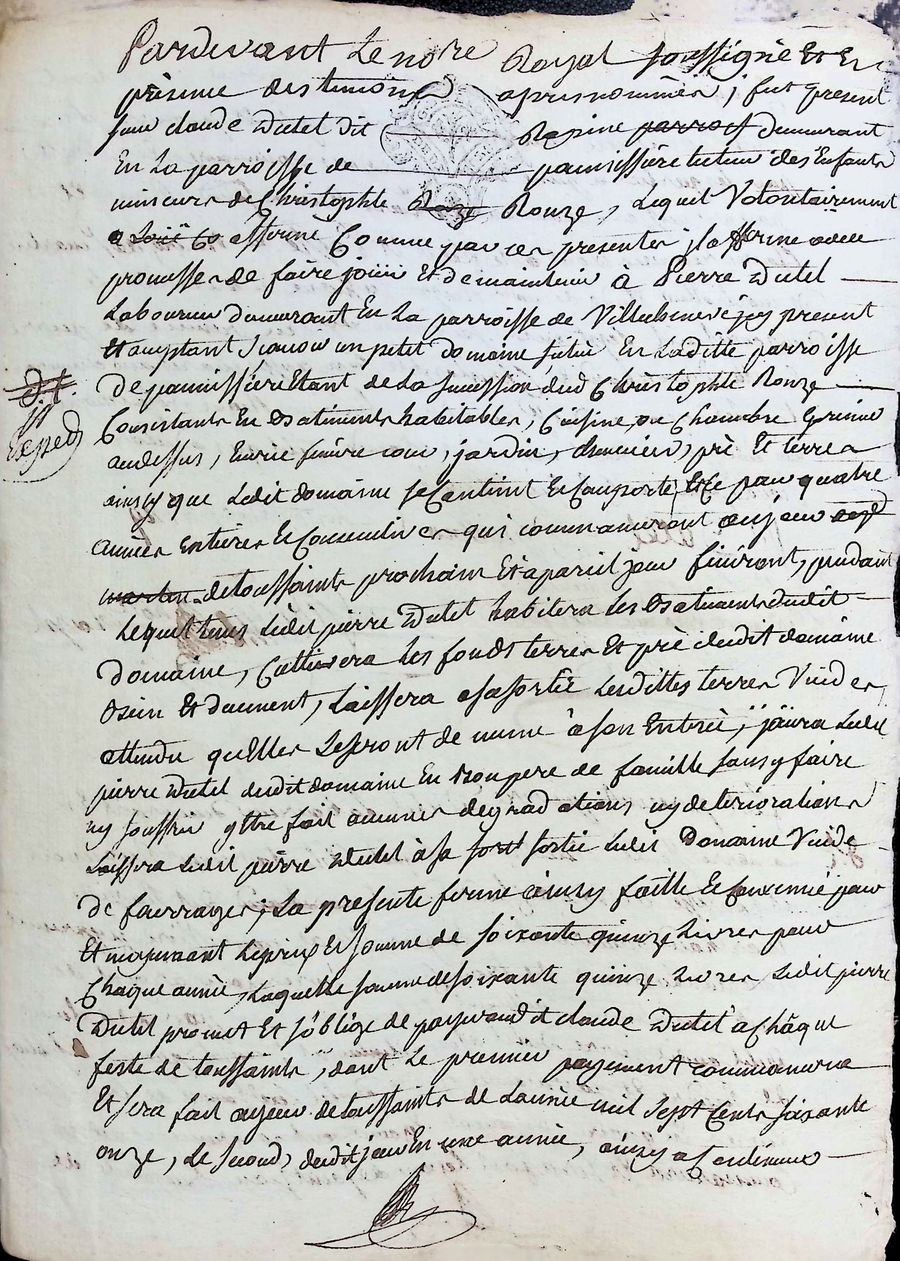 Pardevant Le no.re Royal soussigné Et En
présence des temoins apres nommés, fut present
sieur claude Dutel dit Rapine parrois demeurant
En La parroisse de pannissière tuteur des Enfants
mineurs de Christophle Roze Rouze, Lequel Volontairement
a Loüé Et affermé Comme par ces presentes il afferme avec
promesse de faire joüir Et de maintenir à Pierre Dutel
Laboureur demeurant En La parroisse de Villecheneve jcy present
Et acceptant scavoir un petit domaine scitué En Laditte parroisse
de pannissière Etant de La succession dud Christophle Rouze
Consistants En Batiments habitables, Cuisine, ou Chambre Grenier
audessus, Ecurie feniere cour, jardin, cheneviere, pré Et terres
ainsy que Ledit domaine se Contient Et Comporte, Et Ce pour quatre
années Entieres Et Consecutives qui commanceront au jour
martin de toussaints prochain Et a pareil jour finiront, pendant
Lequel tems Ledit pierre Dutel habitera Les Batiments dudit
Domaine, Cultivera Les fonds terres Et pré dudit domaine
Bien Et duement, Laissera a sa sortie Lesdittes terres Vuides,
attendu quElles Le seront de meme à son Entrée, joüira Ledit
pierre Dutel dudit domaine En Bon pere de famille sans y faire
ny souffrir ÿtre fait aucunes degradations ny deteriorations
Laissera Ledit pierre Dutel à sa sort sortie Ledit Domaine Vuide
De fourrages; La presente ferme ainsy faitte Et Convenüe pour
Et moyennant Le prix Et somme de soixante quinze Livres pour
Chaque année, Laquelle somme de soixante quinze Livres Ledit pierre
Dutel promet Et s'oblige de payer aud it claude Dutel a Châque
feste de toussaints, dont Le premier payement commancera
Et sera fait au jour de toussaints de Lannée mil sept Cents soixante
onze, Le second, dudit jour En une année, ainsy a Continuer
Exped